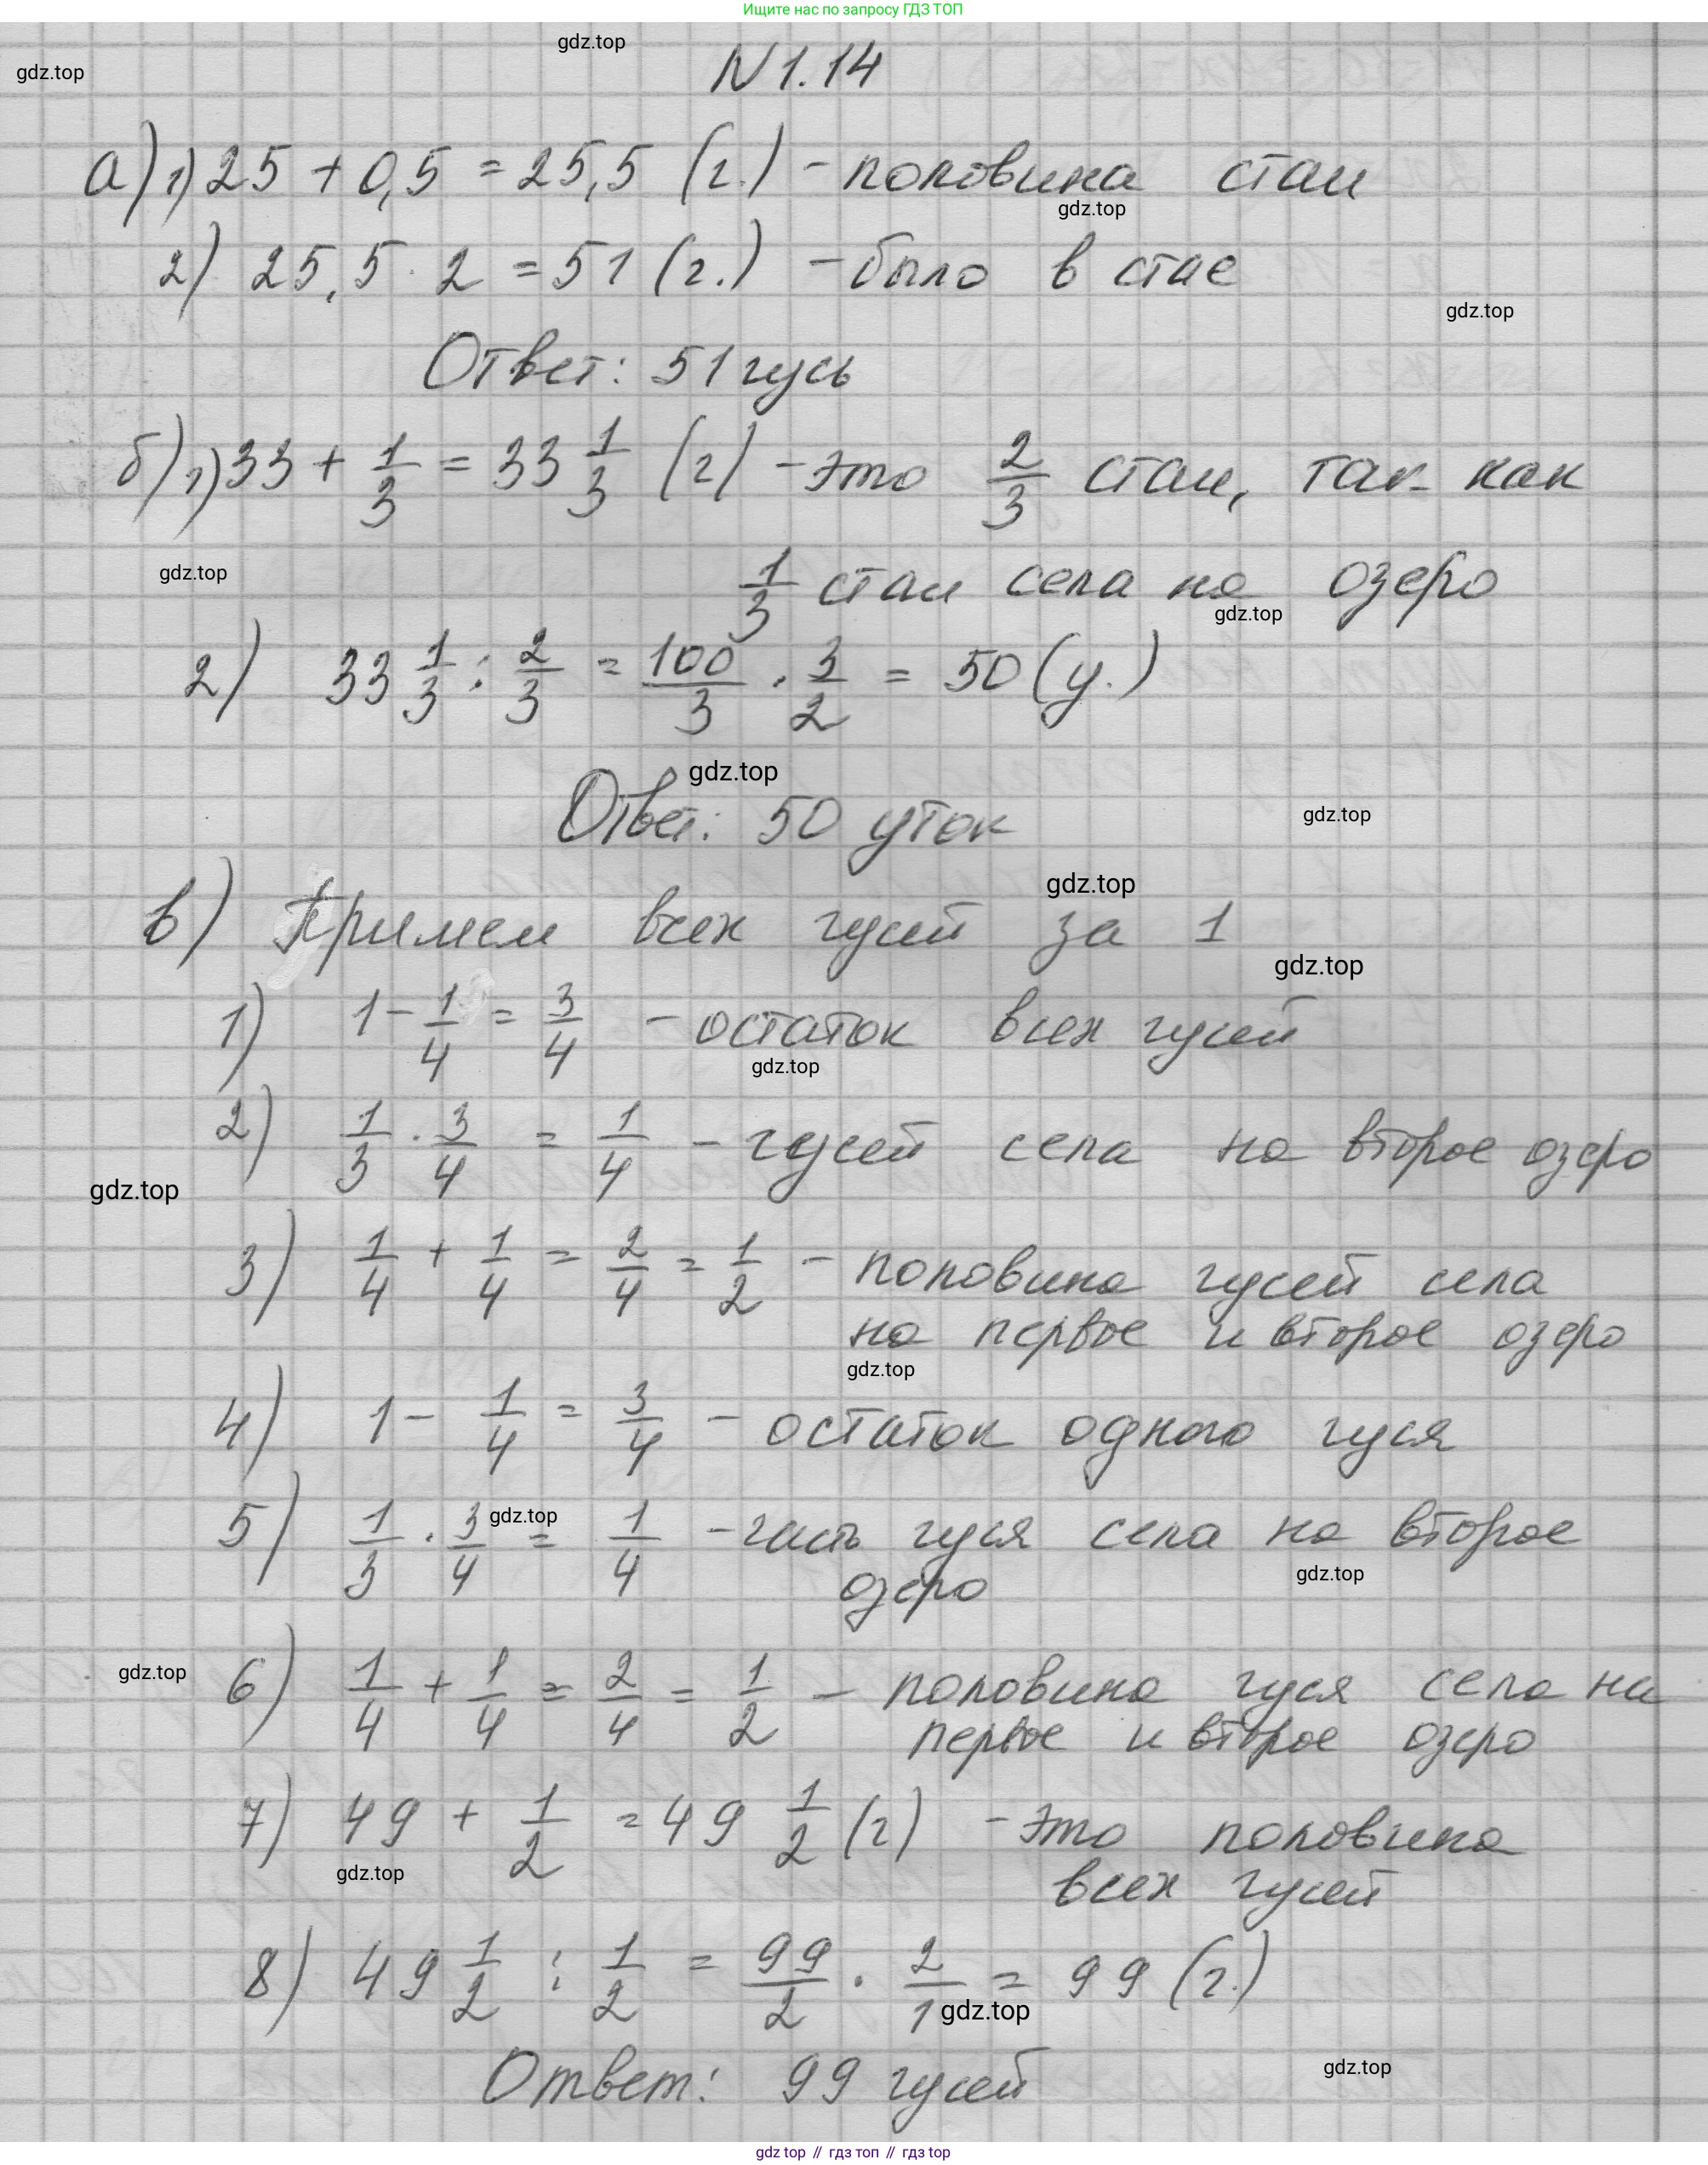 Ищите нас по запросу ГДЗ ТОП
gdz.top
N 1.14
gdz.top
а) 1) 25 + 0,5 = 25,5 (г.) - половина стаи
gdz.top
2) 25,5 · 2 = 51 (г.) - было в стае
gdz.top
Ответ: 51 гусь
б) 1) 33 + 1/3 = 33 1/3 (г) - это 2/3 стаи, так как
gdz.top
1/3 стаи села на озеро
gdz.top
2) 33 1/3 : 2/3 = 100/3 · 3/2 = 50 (у.)
gdz.top
Ответ: 50 уток
gdz.top
gdz.top
в) Примем всех гусей за 1
gdz.top
1) 1 - 1/4 = 3/4 - остаток всех гусей
gdz.top
2) 1/3 · 3/4 = 1/4 - гусей села на второе озеро
gdz.top
3) 1/4 + 1/4 = 2/4 = 1/2 - половина гусей села
на первое и второе озеро
gdz.top
4) 1 - 1/4 = 3/4 - остаток одного гуся
gdz.top
5) 1/3 · 3/4 = 1/4 - часть гуся села на второе
озеро
gdz.top
gdz.top
6) 1/4 + 1/4 = 2/4 = 1/2 - половина гуся села на
первое и второе озеро
7) 49 + 1/2 = 49 1/2 (г) - это половина
gdz.top
всех гусей
8) 49 1/2 : 1/2 = 99/2 · 2/1 = 99 (г.)
gdz.top
Ответ: 99 гусей
gdz.top
gdz top // гдз топ // гдз top